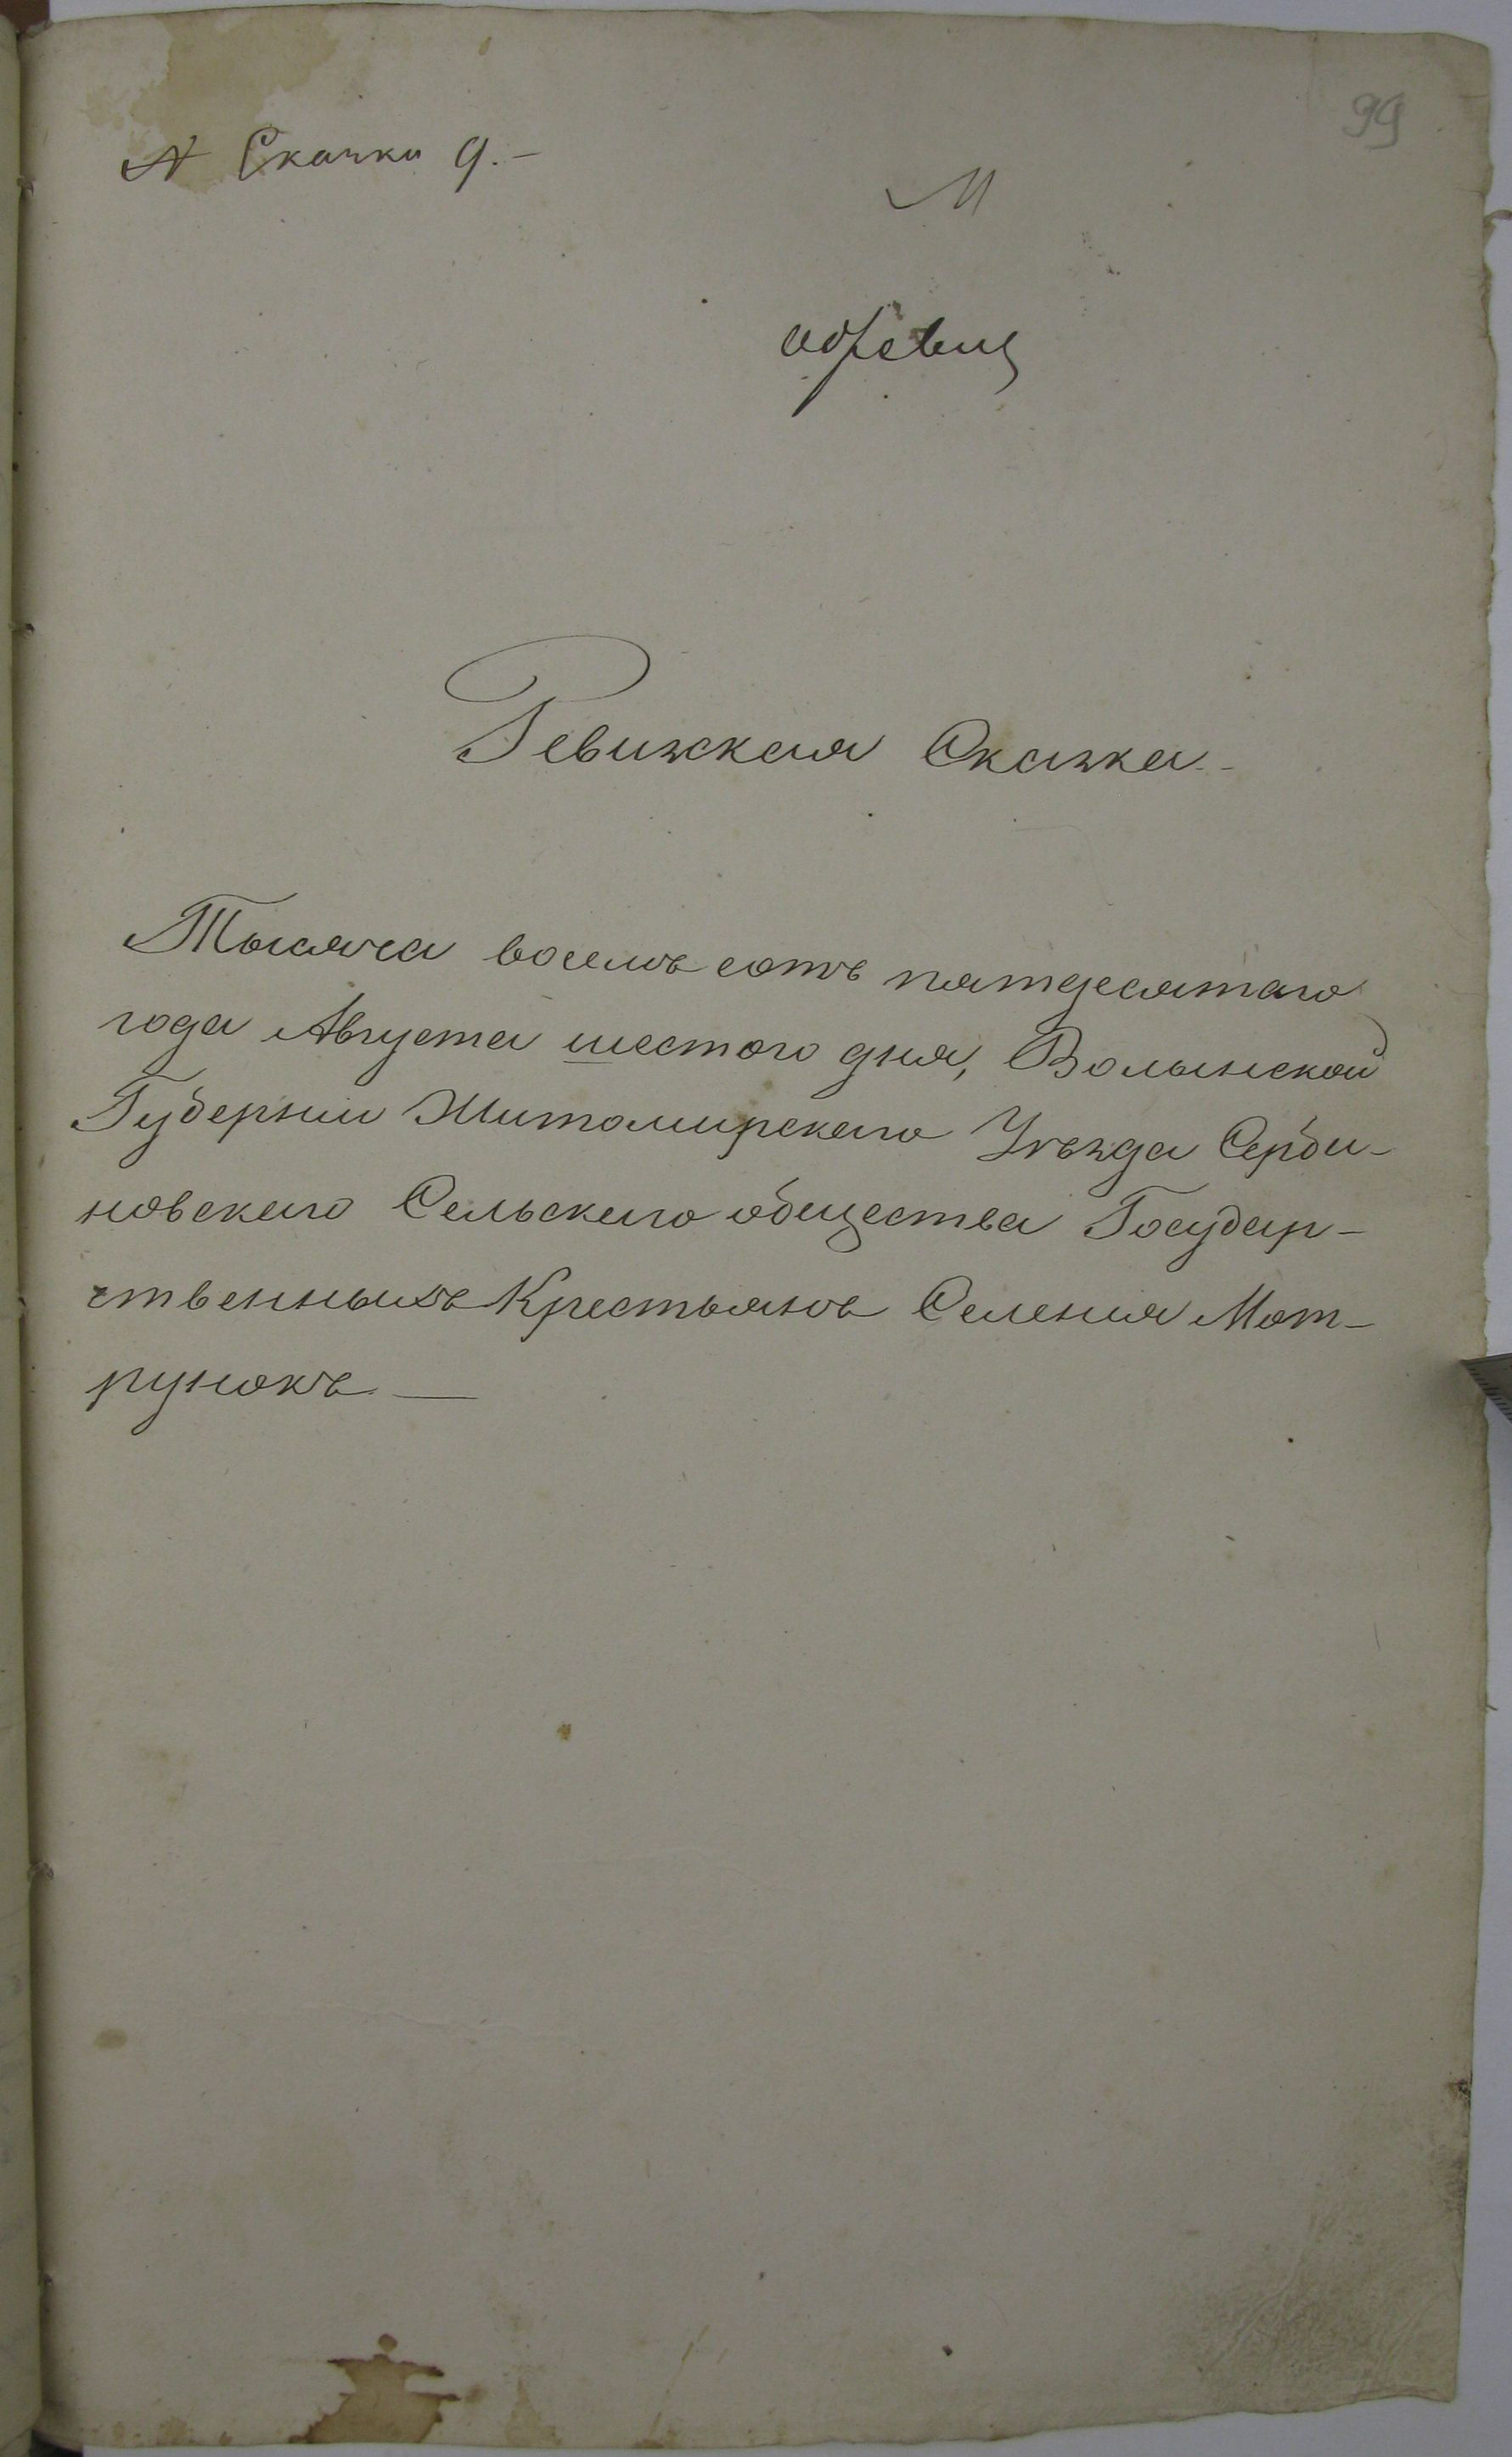 99
№ Сказки 9.-
М
Ревизская Сказка.-
Тысяча восемь сотъ пятдесятаго
года Августа шестого дня, Волынской
Губернии Житомирскаго Уѣзда Серби-
новскаго Сельскаго общества Государ-
ственныхъ Крестьянъ Селения Мот-
рунокъ.—